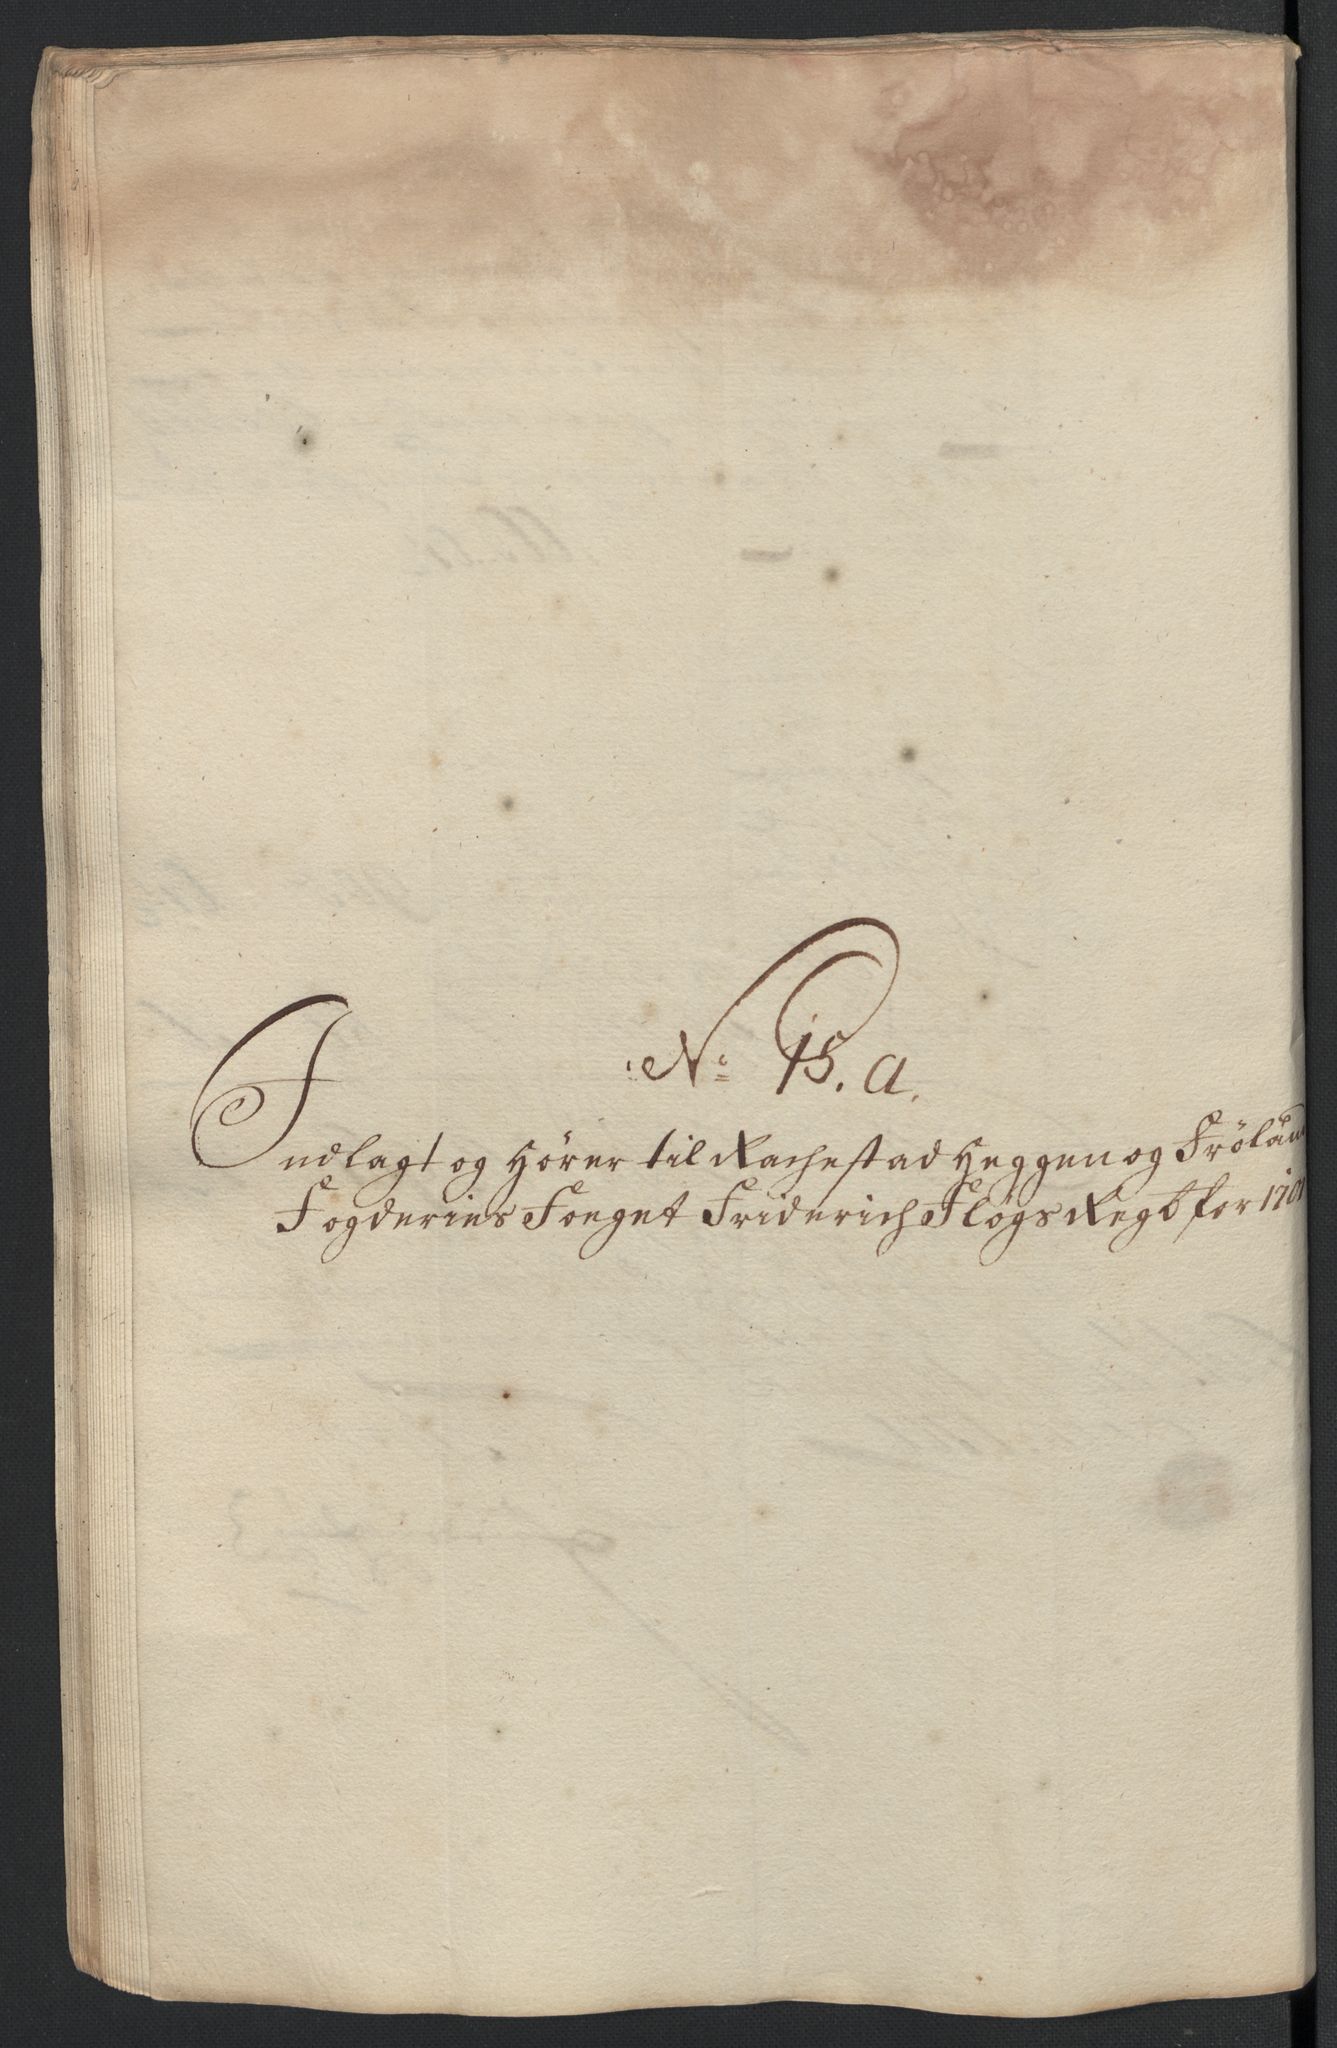 No 15. a.
Indlagt og Hører til Rachestad Heggen og Frøland
Fogderies Foeget Friderich Fløgs Regb for 1701